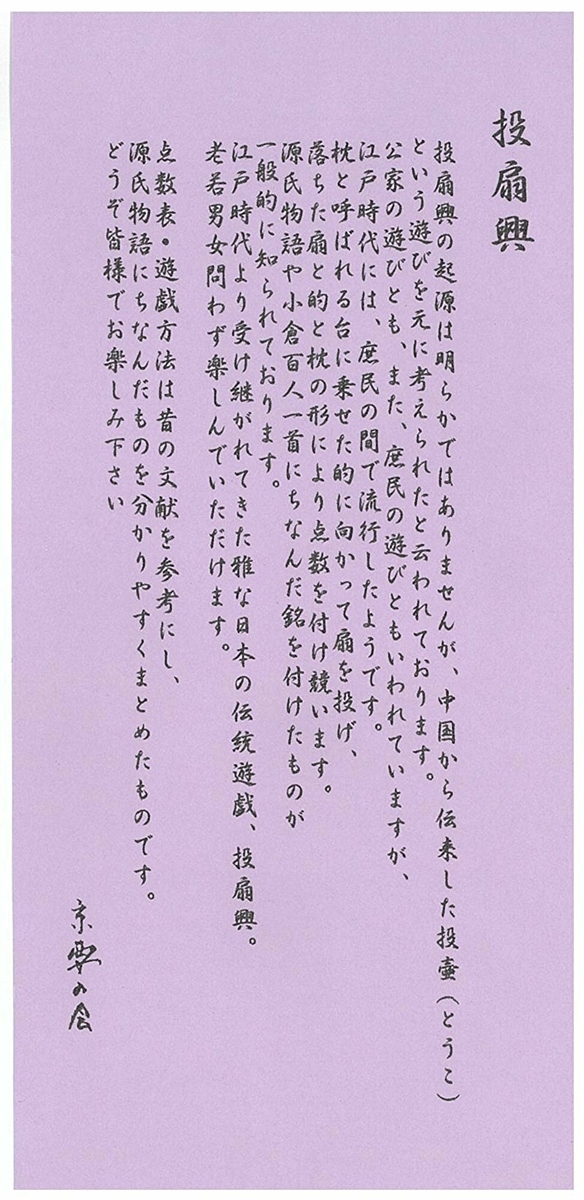 投扇興
投扇興の起源は明らかではありませんが、中国から伝来した投壷（とうこ）
という遊びを元に考えられたと云われております。
公家の遊びとも、また、庶民の遊びともいわれていますが、
江戸時代には、庶民の間で流行したようです。
枕と呼ばれる台に乗せた的に向かって扇を投げ、
落ちた扇と的と枕の形により点数を付け競います。
源氏物語や小倉百人一首にちなんだ銘を付けたものが
一般的に知られております。
江戸時代より受け継がれてきた雅な日本の伝統遊戯、投扇興。
老若男女問わず楽しんでいただけます。
点数表・遊戯方法は昔の文献を参考にし、
源氏物語にちなんだものを分かりやすくまとめたものです。
どうぞ皆様でお楽しみ下さい
京要の会